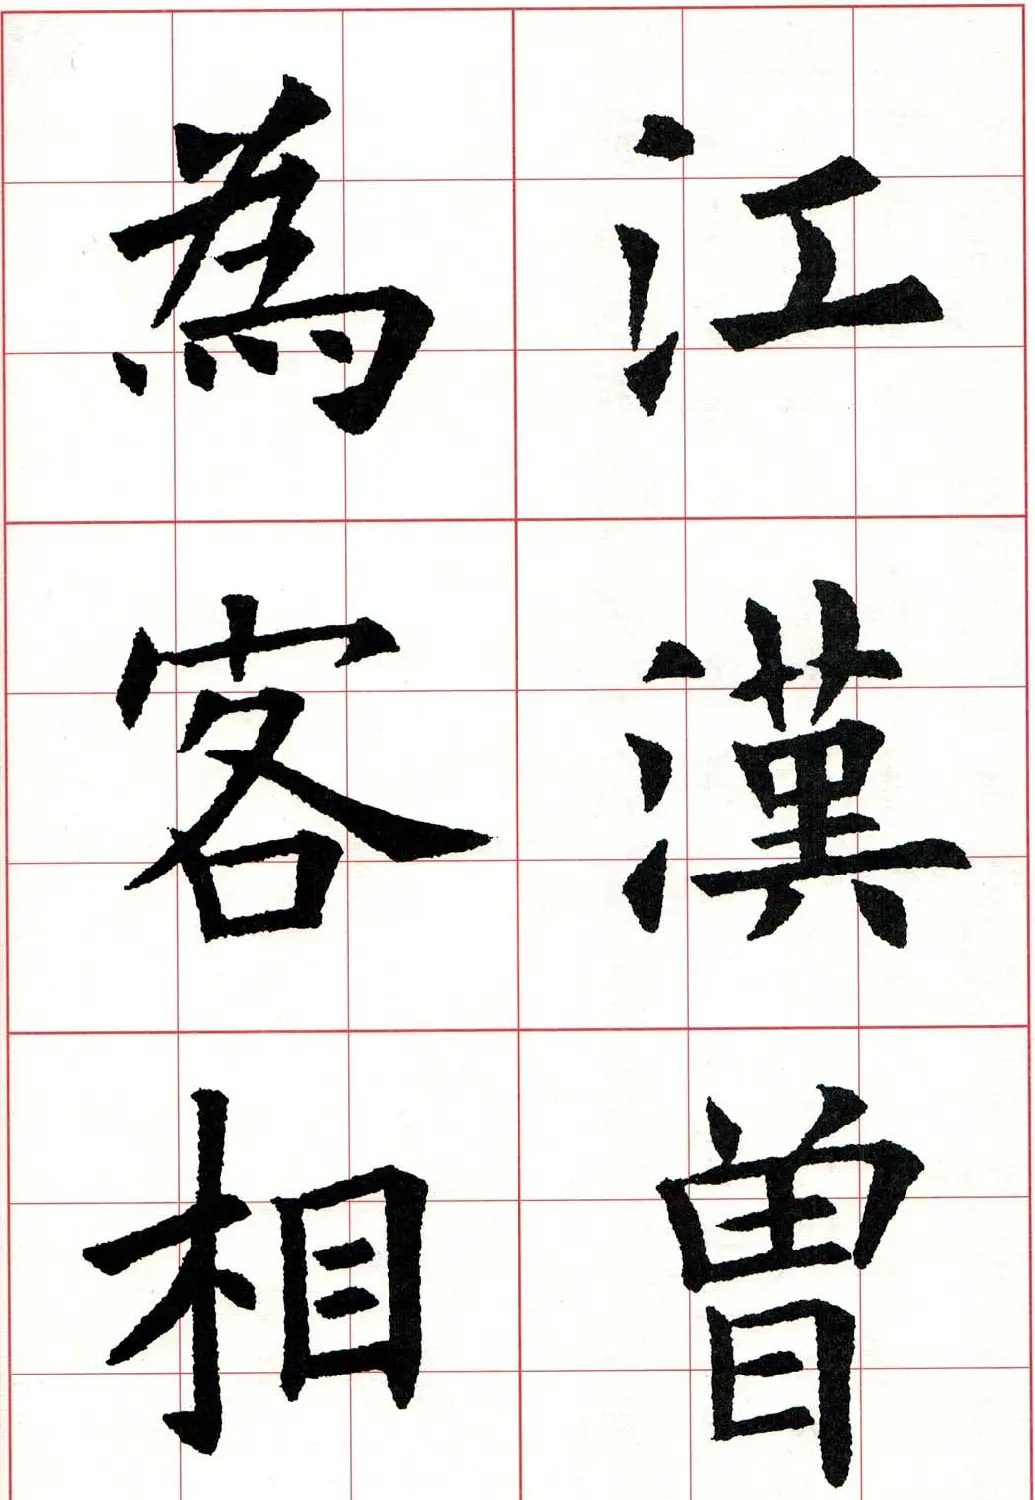 江漢曾
為客相